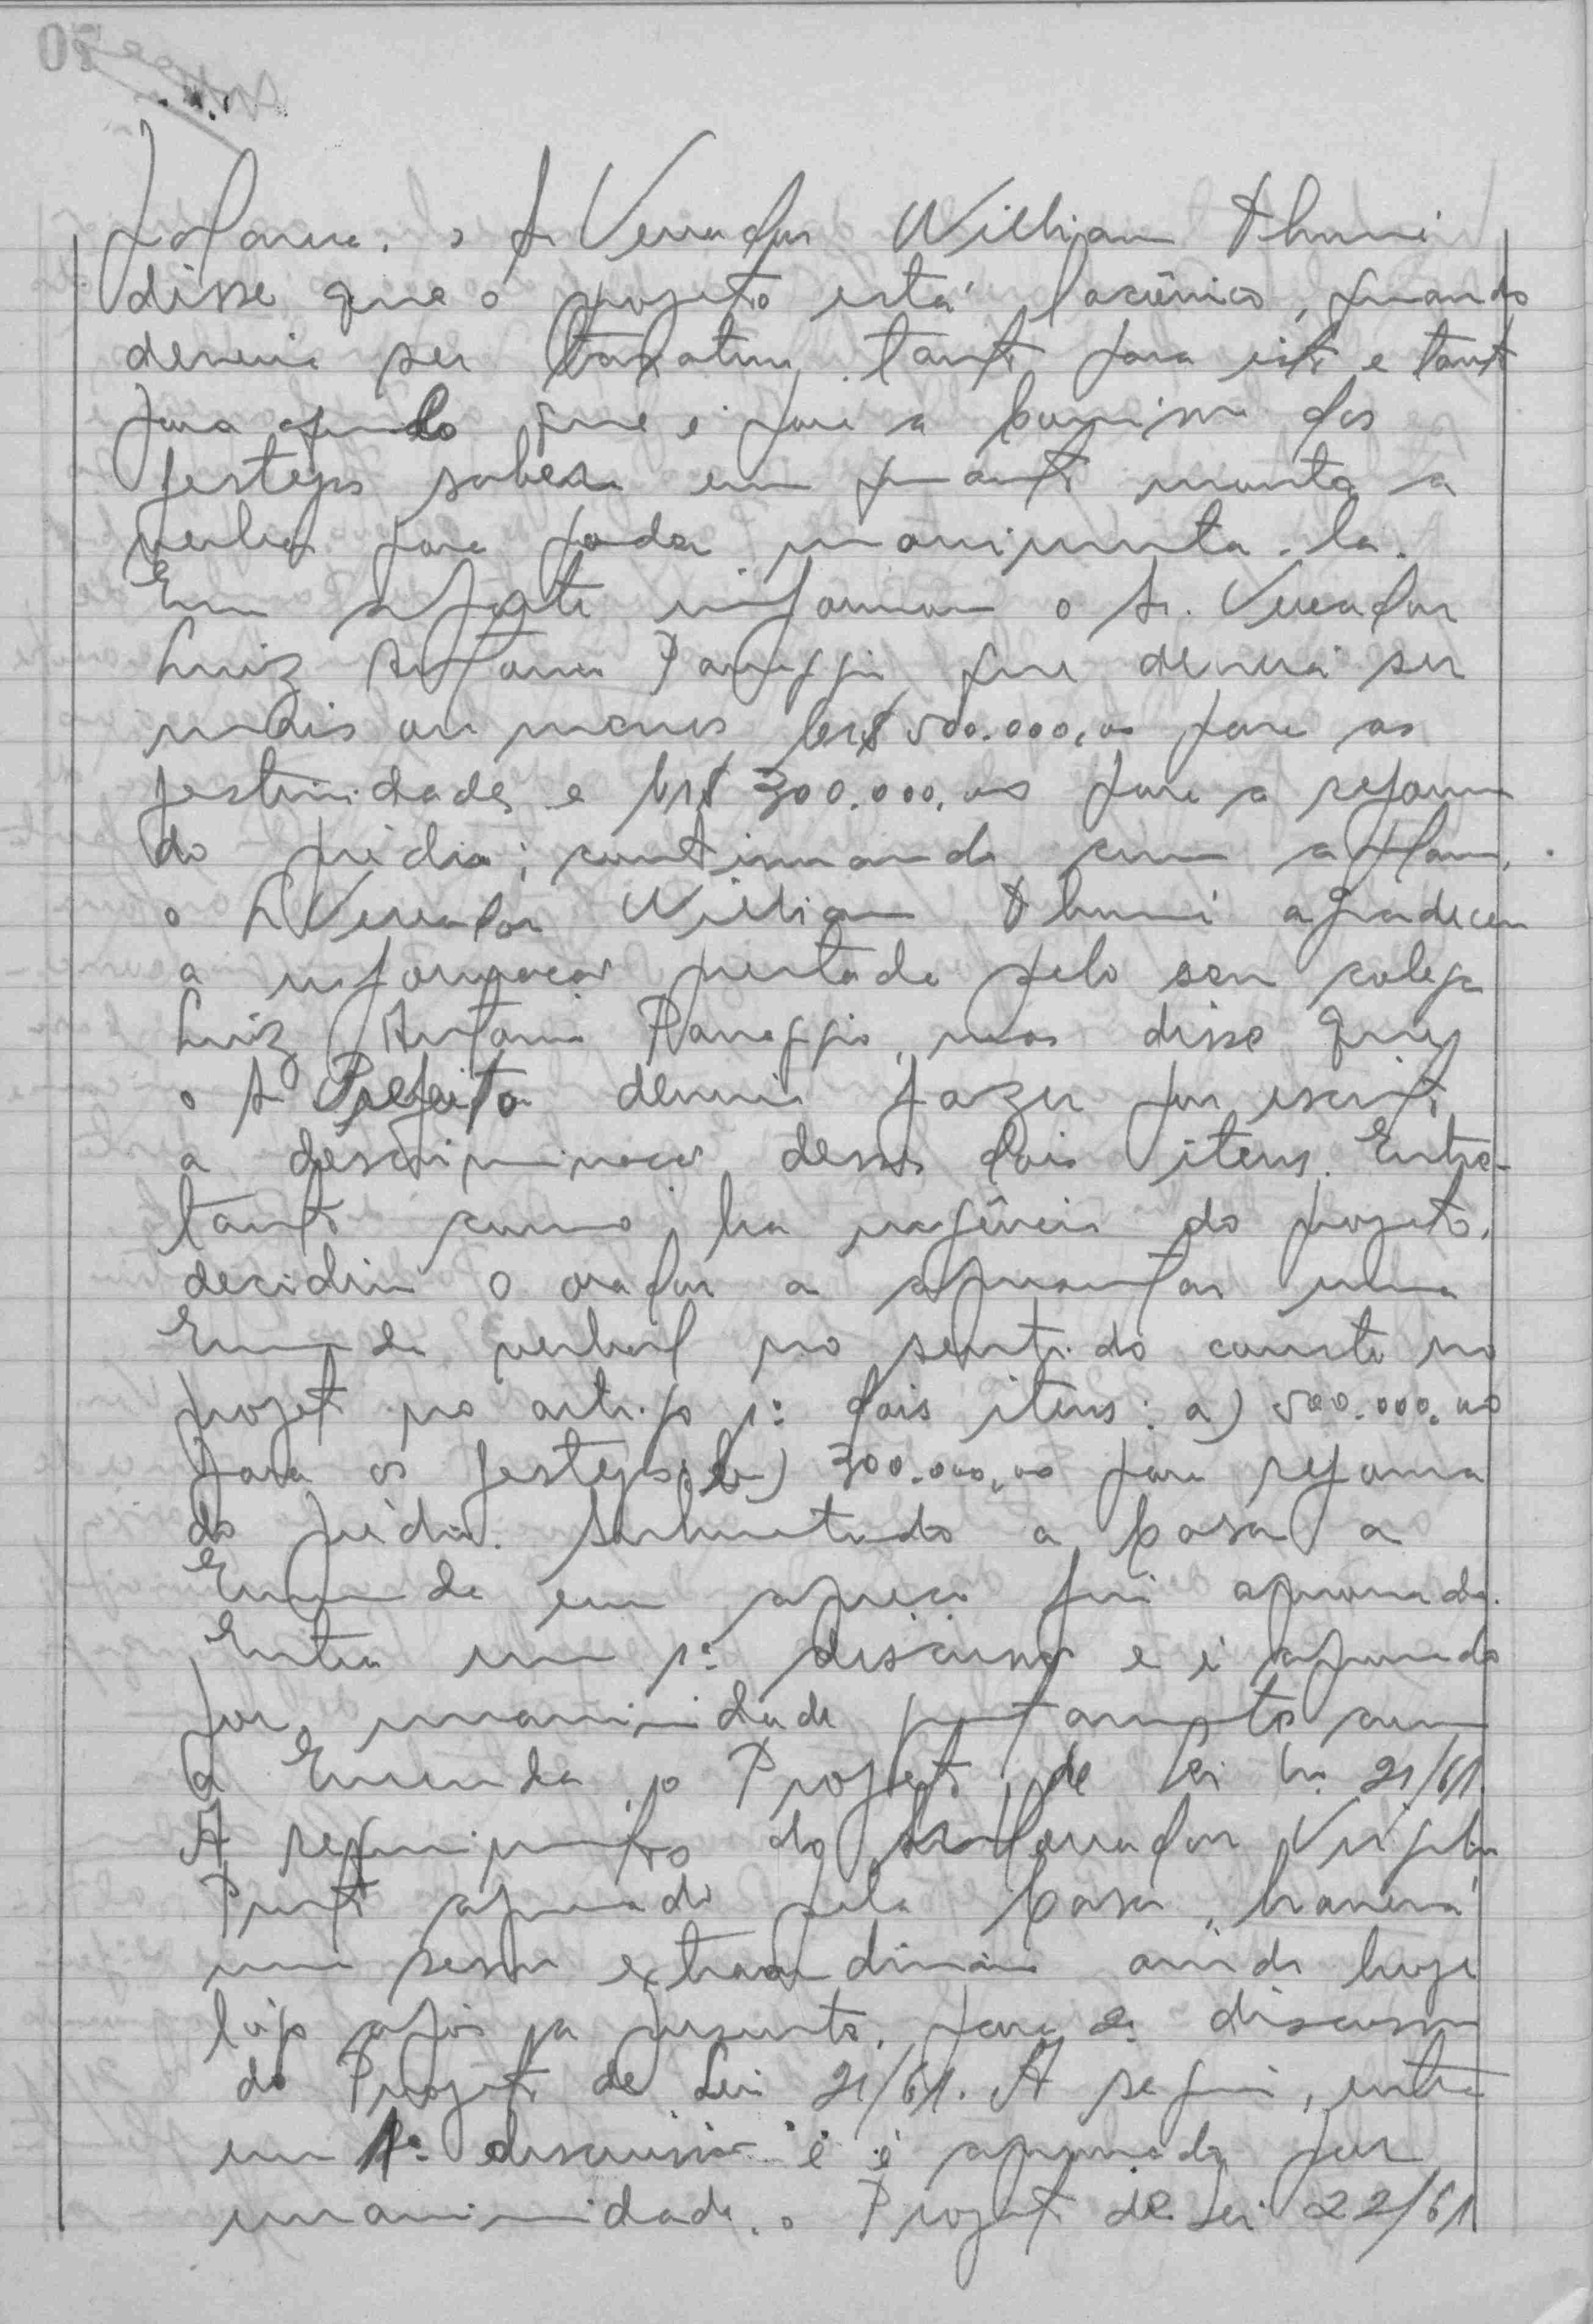 palavra, o Sr Vereador William Thumé
disse que o projeto está lacônico, quando
deveria ser taxativo tanto para isto e tanto
para aquilo que é para a Comissão dos
festejos saber em quanto monta a
verba para poder movimenta-la.
Em aparte informou o Sr. Vereador
Luiz Antonio que deverá ser
mais ou menos Cr$ 500.000,00 para as
festividades e Cr$ 300.000,00 para a reforma
do prédio; continuando com a palavra,
o Sr Vereador William Thumé agradeceu
a informação prestada pelo seu colega
Luiz Antonio mas disse que
o Sr Prefeito deveria fazer por escrito
a descriminação desses dois itens. Entre-
tanto como ha urgência do projeto,
decidiu o orador a apresentar uma
Emenda verbal no sentido conste no
projeto no artigo 1º dois itens: a) 500.000,00
para os festejos; b) 300.000,00 para reforma
do prédio. Submetido a Casa a
Emenda em apreço foi aprovada.
Entra em 1ª discussão e é aprovado
por unanimidade juntamente com
a Emenda, o Projeto de Lei nº 21/61.
A requerimento do Sr Vereador Virgilio
aprovado pela Casa, haverá
uma sessão extraordinária ainda hoje
logo após a presente, para a discussão
do Projeto de Lei 21/61. A seguir, entra
em 1ª discussão e é aprovado por
unanimidade, o Projeto de Lei 22/61